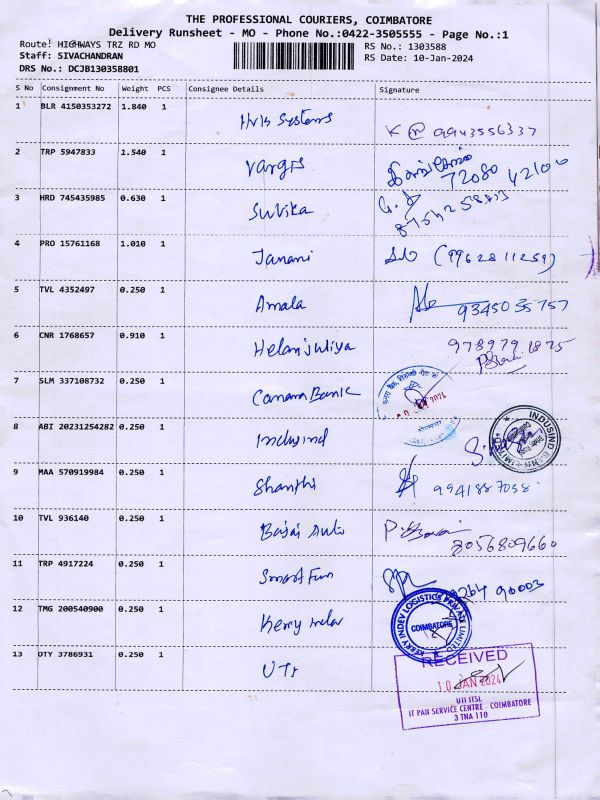 THE PROFESSIONAL COURIERS, COIMBATORE
Delivery Runsheet - MO - Phone No.:0422-3505555 - Page No.:1
Route: HIGHWAYS TRZ RD MO
RS No.: 1303588
Staff: SIVACHANDRAN
RS Date: 10-Jan-2024
DRS No.: DCJB130358801
S No Consignment No Weight PCS Consignee Details Signature
1 BLR 4150353272 1.840 1 Systems 9943556337
2 TRP 5947833 1.540 1 Vargis 72080 42100
3 HRD 745435985 0.630 1 Suvika
4 PRO 15761168 1.010 1 Janani (9962811259)
5 TVL 4352497 0.250 1 Amala 9345035757
6 CNR 1768657 0.910 1 Helanjuliya 978979 1875
7 SLM 337108732 0.250 1 Canara Bank
8 ABI 20231254282 0.250 1 Indusind
INDUSIND BANK LIMITED
9 MAA 570919984 0.250 1 Shanthi 9941887058
10 TVL 936140 0.250 1 Bajaj Auto 8056809660
11 TRP 4917224 0.250 1 Smart Fun 90003
12 TMG 200540900 0.250 1 Kerry Indev
KERRY INDEV LOGISTICS PRIVATE LIMITED
COIMBATORE
13 OTY 3786931 0.250 1 UTI
RECEIVED
10 JAN 2024
UTI ITSL
IT PAN SERVICE CENTRE - COIMBATORE
3 TNA 110